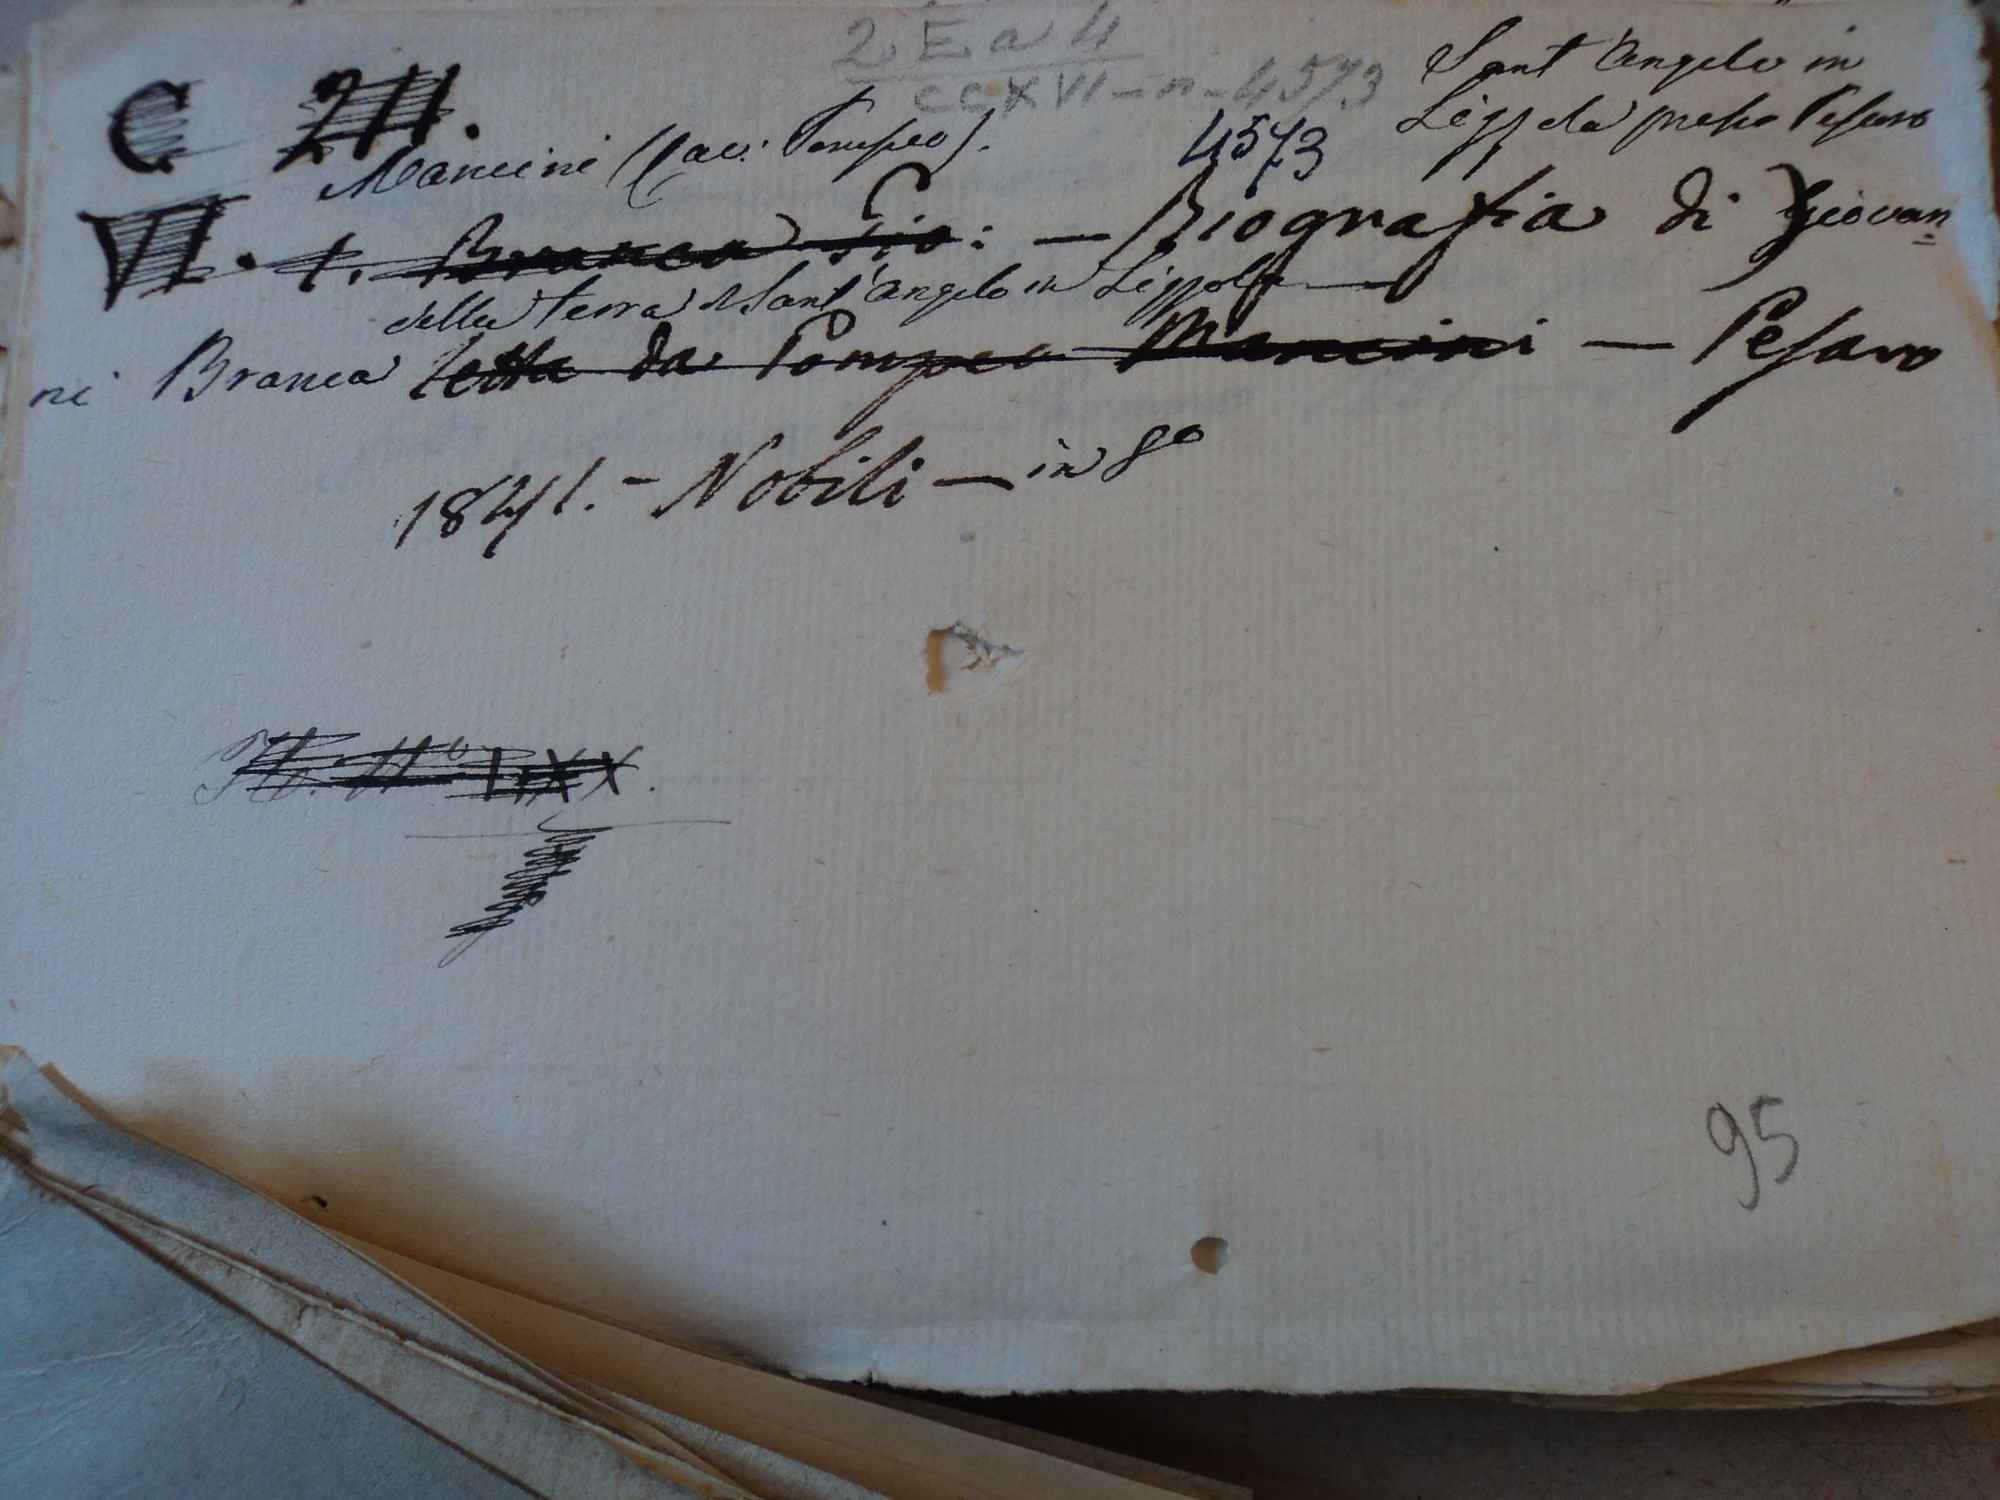 2 E a 4
CCXVI - n - 4573
Sant'Angelo in
Lizzola presso Pesaro
C
4573
Mancini (Cav: Pompeo).
VI. 1. Branca Gio: — Biografia di Giovan=
della terra di Sant'Angelo in Lizzola —
ni Branca letta da Pompeo Mancini — Pesaro
1841. - Nobili — in 8o
LXX.
95